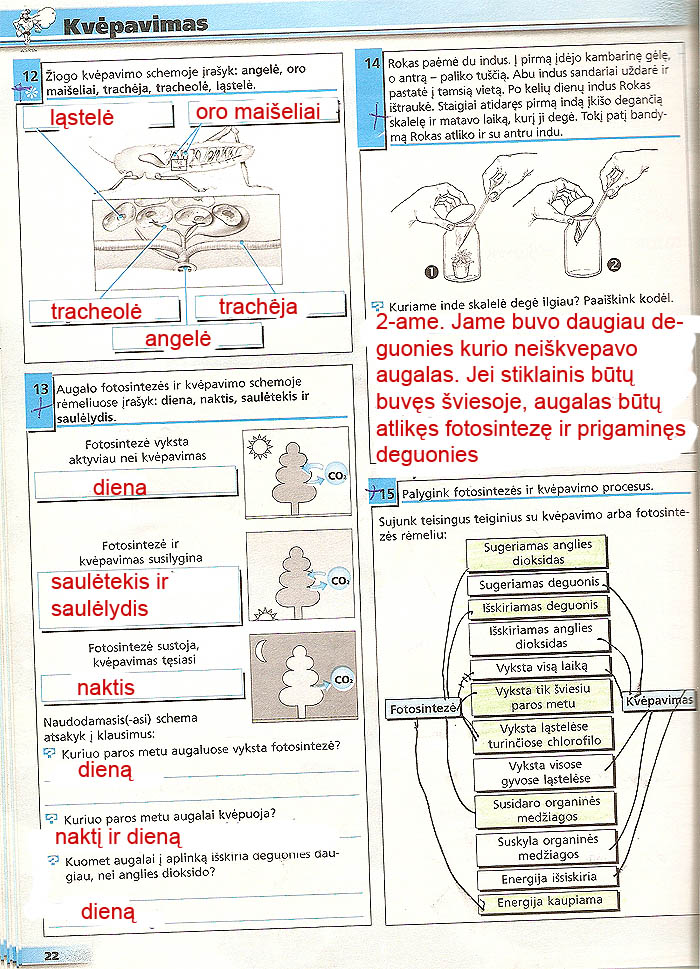 Kvėpavimas
12 Žiogo kvėpavimo schemoje įrašyk: angelė, oro
maišeliai, trachėja, tracheolė, ląstelė.
ląstelė
oro maišeliai
tracheolė
trachėja
angelė
13 Augalo fotosintezės ir kvėpavimo schemoje
rėmeliuose įrašyk: diena, naktis, saulėtekis ir
saulėlydis.
Fotosintezė vyksta
aktyviau nei kvėpavimas
diena
CO₂
Fotosintezė ir
kvėpavimas susilygina
saulėtekis ir
saulėlydis
CO₂
Fotosintezė sustoja,
kvėpavimas tęsiasi
naktis
CO₂
Naudodamasis(-asi) schema
atsakyk į klausimus:
Kuriuo paros metu augaluose vyksta fotosintezė?
dieną
Kuriuo paros metu augalai kvėpuoja?
naktį ir dieną
Kuomet augalai į aplinką išskiria deguonies dau-
giau, nei anglies dioksido?
dieną
22
14 Rokas paėmė du indus. Į pirmą įdėjo kambarinę gėlę,
o antrą – paliko tuščią. Abu indus sandariai uždarė ir
pastatė į tamsią vietą. Po kelių dienų indus Rokas
ištraukė. Staigiai atidaręs pirmą indą įkišo degančią
skalelę ir matavo laiką, kurį ji degė. Tokį patį bandy-
mą Rokas atliko ir su antru indu.
1
2
Kuriame inde skalelė degė ilgiau? Paaiškink kodėl.
2-ame. Jame buvo daugiau de-
guonies kurio neiškvepavo
augalas. Jei stiklainis būtų
buvęs šviesoje, augalas būtų
atlikęs fotosintezę ir prigaminęs
deguonies
15 Palygink fotosintezės ir kvėpavimo procesus.
Sujunk teisingus teiginius su kvėpavimo arba fotosinte-
zės rėmeliu:
Sugeriamas anglies
dioksidas
Sugeriamas deguonis
Išskiriamas deguonis
Išskiriamas anglies
dioksidas
Vyksta visą laiką
Vyksta tik šviesiu
paros metu
Fotosintezė
Kvėpavimas
Vyksta ląstelėse
turinčiose chlorofilo
Vyksta visose
gyvose ląstelėse
Susidaro organinės
medžiagos
Suskyla organinės
medžiagos
Energija išsiskiria
Energija kaupiama